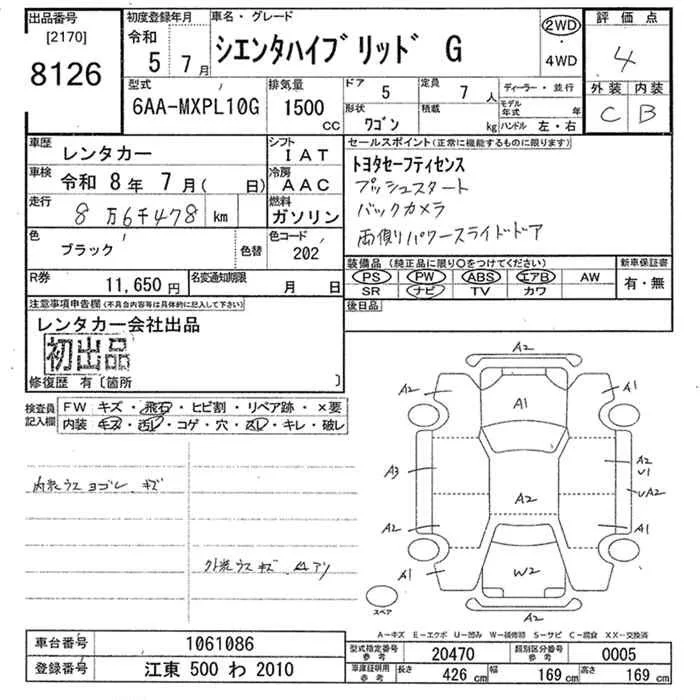 出品番号
[2170]
8126
初度登録年月
令和
5 7月
車名・グレード
シエンタハイブリッド G
2WD
・
4WD
評価点
4
外装 内装
C B
型式
6AA-MXPL10G
排気量
1500
cc
ドア
5
定員
7 人
形状
ワゴン
積載
kg
ディーラー・並行
モデル年式 年
ハンドル 左・右
車歴
レンタカー
シフト
IAT
車検
令和 8年 7月( 日)
冷房
AAC
走行
8万6千478 km
燃料
ガソリン
色
ブラック
色替
色コード
202
R券
11,650円
名変通知期限
月 日
セールスポイント(正常に機能するものに限ります)
トヨタセーフティセンス
プッシュスタート
バックカメラ
両側パワースライドドア
装備品(純正品に限り○をつけてください)
PS PW ABS エアB AW
SR ナビ TV カワ
新車保証書
有・無
後日品
注意事項申告欄(不具合内容等は具体的に記入して下さい)
レンタカー会社出品
初出品
修復歴 有〔箇所 〕
検査員記入欄
FW キズ・飛石・ヒビ割・リペア跡・×要
内装 キズ・汚レ・コゲ・穴・スレ・キレ・破レ
内装ウス ヨゴレ キズ
外装ウス キズ
A2
A2
A1
A1
A3
A2
U1
A2
UA2
A2
A1
A1
W2
A2
スペア
A-キズ E-エクボ U-凹み W-補修跡 S-サビ C-腐食 XX-交換済
車台番号
1061086
登録番号
江東 500 わ 2010
型式指定番号
参考
20470
類別区分番号
参考
0005
車庫証明用
参考
長さ
426 cm
幅
169 cm
高さ
169 cm